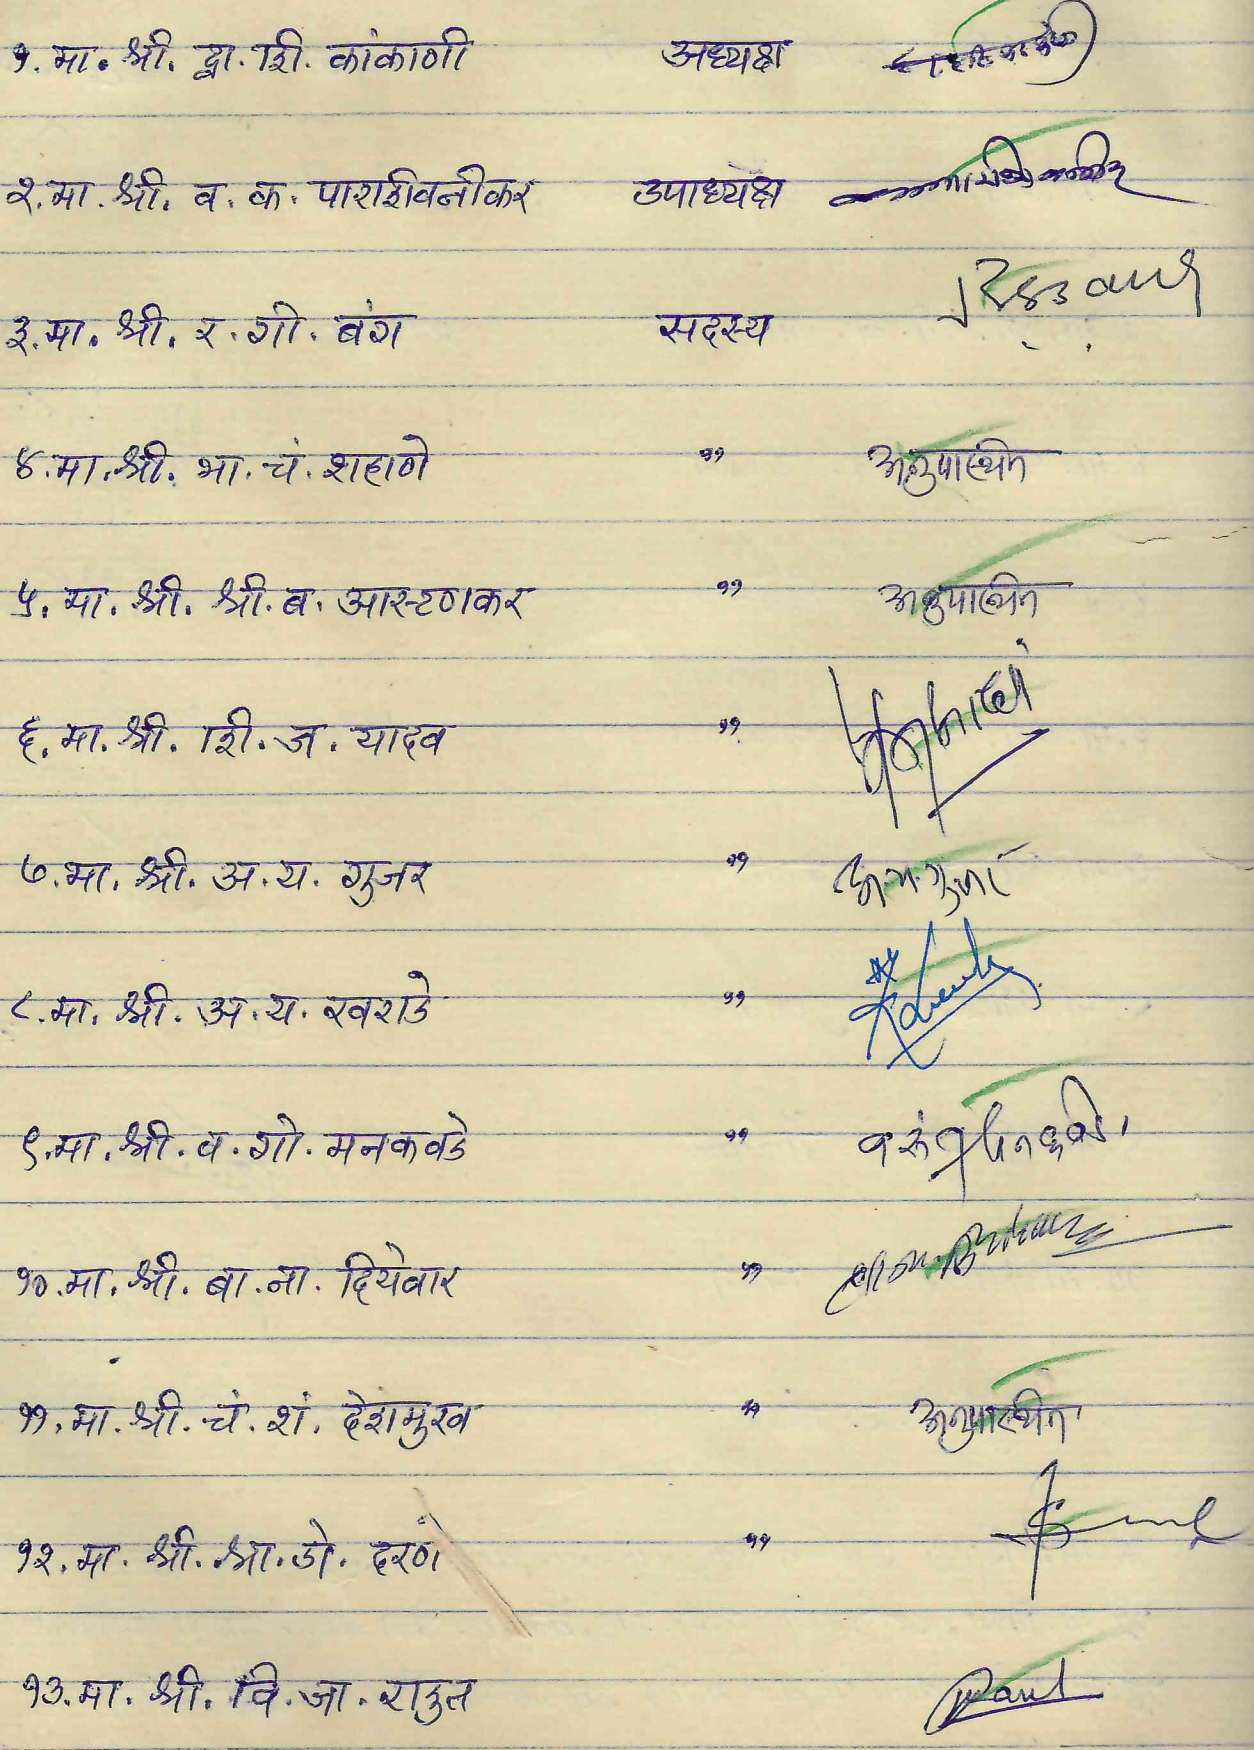 १. मा. श्री. द्वा. शि. कांकाणी अध्यक्ष
२. मा. श्री. व. क. पाराशिवनीकर उपाध्यक्ष
३. मा. श्री. र. गो. बंग सदस्य
४. मा. श्री. भा. चं. शहाणे " अनुपास्थित
५. मा. श्री. श्री. ब. आस्टणकर " अनुपास्थित
६. मा. श्री. शि. ज. यादव "
७. मा. श्री. अ. य. गुजर " अ. य. गुजर
८. मा. श्री. अ. य. खराडे "
९. मा. श्री. व. गो. मनकवडे "
१०. मा. श्री. बा. ना. दियेवार "
११. मा. श्री. चं. शं. देशमुख " अनुपास्थित
१२. मा. श्री. श्रा. डो. दरणे "
१३. मा. श्री. वि. जा. राऊत Raut